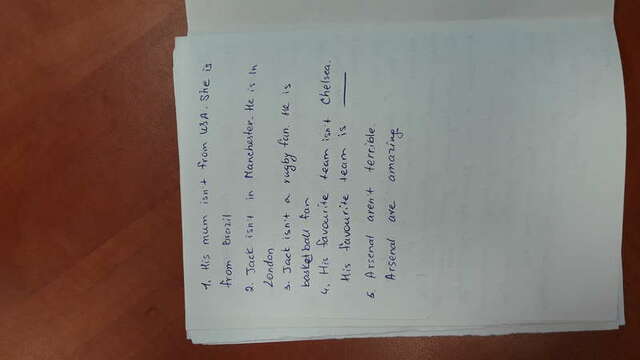 1. His mum isn't from USA. She is
from Brazil
2. Jack isn't in Manchester. He is in
London
3. Jack isn't a rugby fan. He is
basketball fan
4. His favourite team isn't Chelsea.
His favourite team is ____
5. Arsenal aren't terrible.
Arsenal are amazing